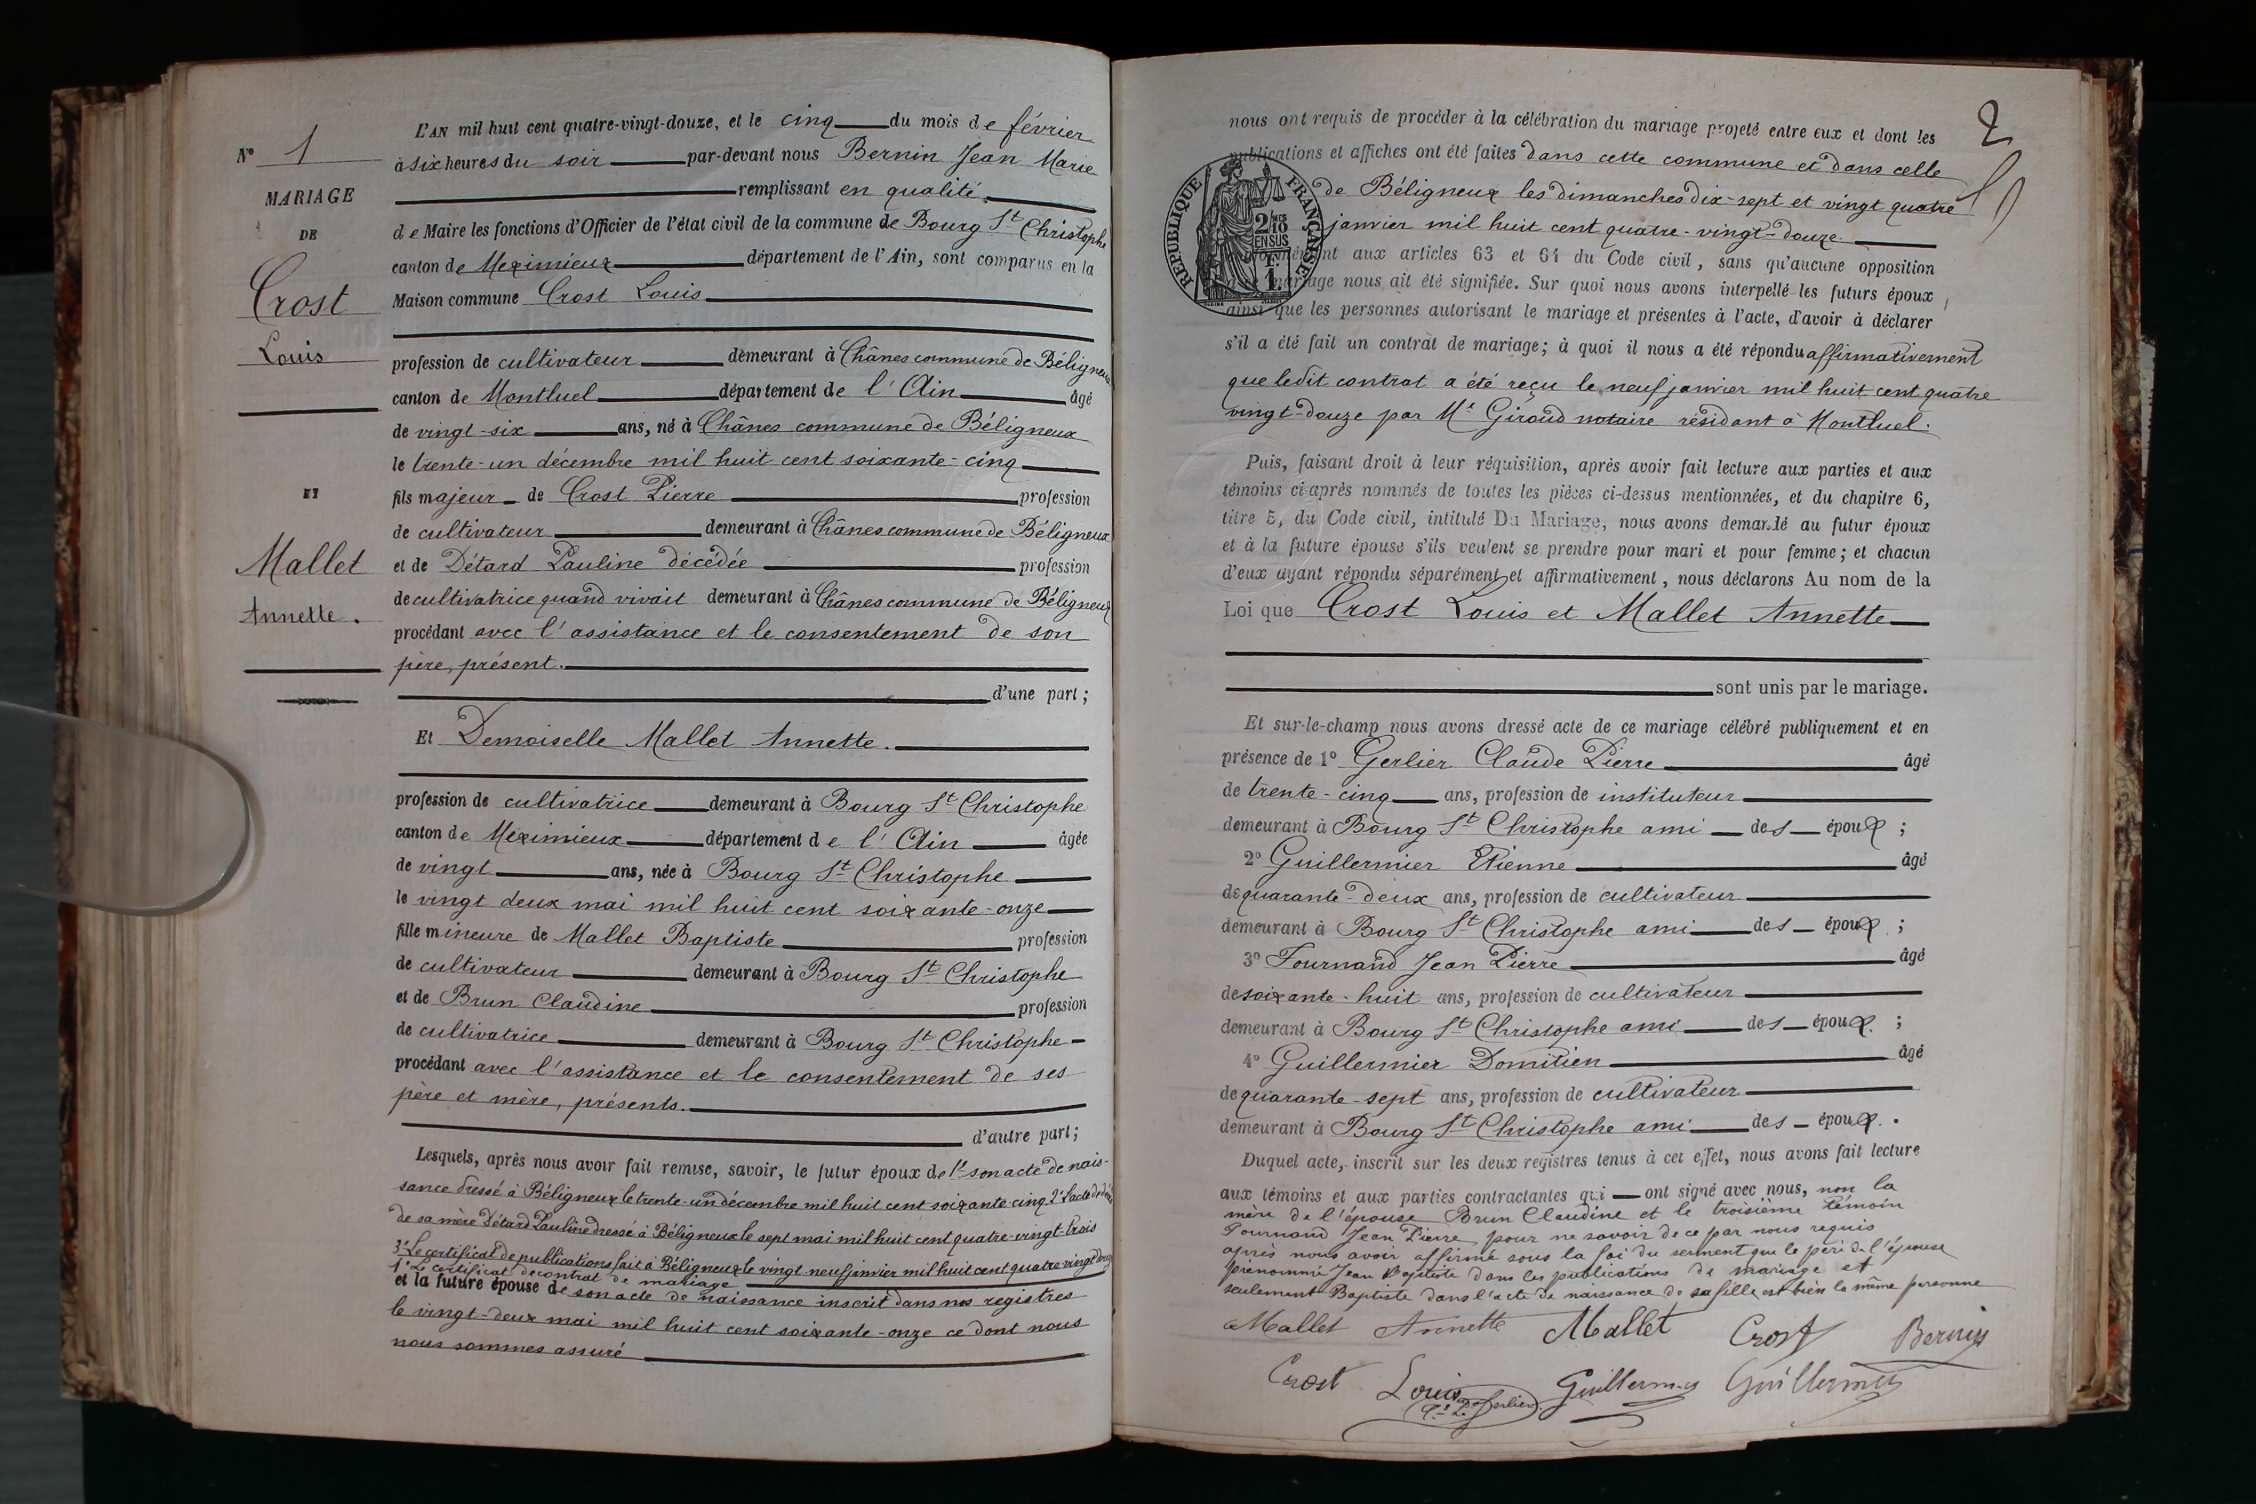 N° 1
MARIAGE
DE
Crost
Louis
ET
Mallet
Annette.
L'AN mil huit cent quatre-vingt-douze, et le cinq du mois de février
à six heures du soir par-devant nous Bernin Jean Marie
remplissant en qualité
de Maire les fonctions d'Officier de l'état civil de la commune de Bourg St Christophe
canton de Meximieux département de l'Ain, sont comparus en la
Maison commune Crost Louis
profession de cultivateur demeurant à Chânes commune de Béligneux
canton de Montluel département de l'Ain âgé
de vingt-six ans, né à Chânes commune de Béligneux
le trente-un décembre mil huit cent soixante-cinq
fils majeur de Crost Pierre profession
de cultivateur demeurant à Chânes commune de Béligneux
et de Détard Pauline décédée profession
de cultivatrice quand vivait demeurant à Chânes commune de Béligneux
procédant avec l'assistance et le consentement de son
père, présent.
d'une part;
Et Demoiselle Mallet Annette.
profession de cultivatrice demeurant à Bourg St Christophe
canton de Meximieux département de l'Ain âgée
de vingt ans, née à Bourg St Christophe
le vingt deux mai mil huit cent soixante-onze
fille mineure de Mallet Baptiste profession
de cultivateur demeurant à Bourg St Christophe
et de Brun Claudine profession
de cultivatrice demeurant à Bourg St Christophe
procédant avec l'assistance et le consentement de ses
père et mère, présents.
d'autre part;
Lesquels, après nous avoir fait remise, savoir, le futur époux de 1° son acte de nais-
sance dressé à Béligneux le trente-un décembre mil huit cent soixante cinq 2° l'acte de décès
de sa mère Détard Pauline dressé à Béligneux le sept mai mil huit cent quatre-vingt-trois
3° Le certificat de publications fait à Béligneux le vingt neuf janvier mil huit cent quatre vingt douze
Le certificat de contrat de mariage
et la future épouse de son acte de naissance inscrit dans nos registres
le vingt-deux mai mil huit cent soixante-onze ce dont nous
nous sommes assuré
2
nous ont requis de procéder à la célébration du mariage projeté entre eux et dont les
publications et affiches ont été faites dans cette commune et dans celle
de Béligneux les dimanches dix-sept et vingt quatre
janvier mil huit cent quatre-vingt-douze.
aux articles 63 et 64 du Code civil, sans qu'aucune opposition
mariage nous ait été signifiée. Sur quoi nous avons interpellé les futurs époux,
ainsi que les personnes autorisant le mariage et présentes à l'acte, d'avoir à déclarer
s'il a été fait un contrat de mariage; à quoi il nous a été répondu affirmativement
que ledit contrat a été reçu le neuf janvier mil huit cent quatre
vingt-douze par Me Giroud notaire résidant à Montluel.
RÉPUBLIQUE FRANÇAISE
2/10 EN SUS
1 F.
Puis, faisant droit à leur réquisition, après avoir fait lecture aux parties et aux
témoins ci-après nommés de toutes les pièces ci-dessus mentionnées, et du chapitre 6,
titre 5, du Code civil, intitulé Du Mariage, nous avons demandé au futur époux
et à la future épouse s'ils veulent se prendre pour mari et pour femme; et chacun
d'eux ayant répondu séparément et affirmativement, nous déclarons Au nom de la
Loi que Crost Louis et Mallet Annette
sont unis par le mariage.
Et sur-le-champ nous avons dressé acte de ce mariage célébré publiquement et en
présence de 1° Gerlier Claude Pierre âgé
de trente-cinq ans, profession de instituteur
demeurant à Bourg St Christophe ami des époux;
2° Guillermier Etienne âgé
de quarante-deux ans, profession de cultivateur
demeurant à Bourg St Christophe ami des époux;
3° Tournand Jean Pierre âgé
de soixante-huit ans, profession de cultivateur
demeurant à Bourg St Christophe ami des époux;
4° Guillermier Domitien âgé
de quarante-sept ans, profession de cultivateur
demeurant à Bourg St Christophe ami des époux.
Duquel acte, inscrit sur les deux registres tenus à cet effet, nous avons fait lecture
aux témoins et aux parties contractantes qui ont signé avec nous, non la
mère de l'épouse Brun Claudine et le troisième témoin
Tournand Jean Pierre pour ne savoir de ce par nous requis
après nous avoir affirmé sous la foi du serment que le père de l'épouse
prénommé Jean Baptiste dans les publications de mariage et
seulement Baptiste dans l'acte de naissance de sa fille est bien la même personne
Mallet Annette Mallet Crost Bernin
Crost Louis Gerlier Guillermier Guillermier